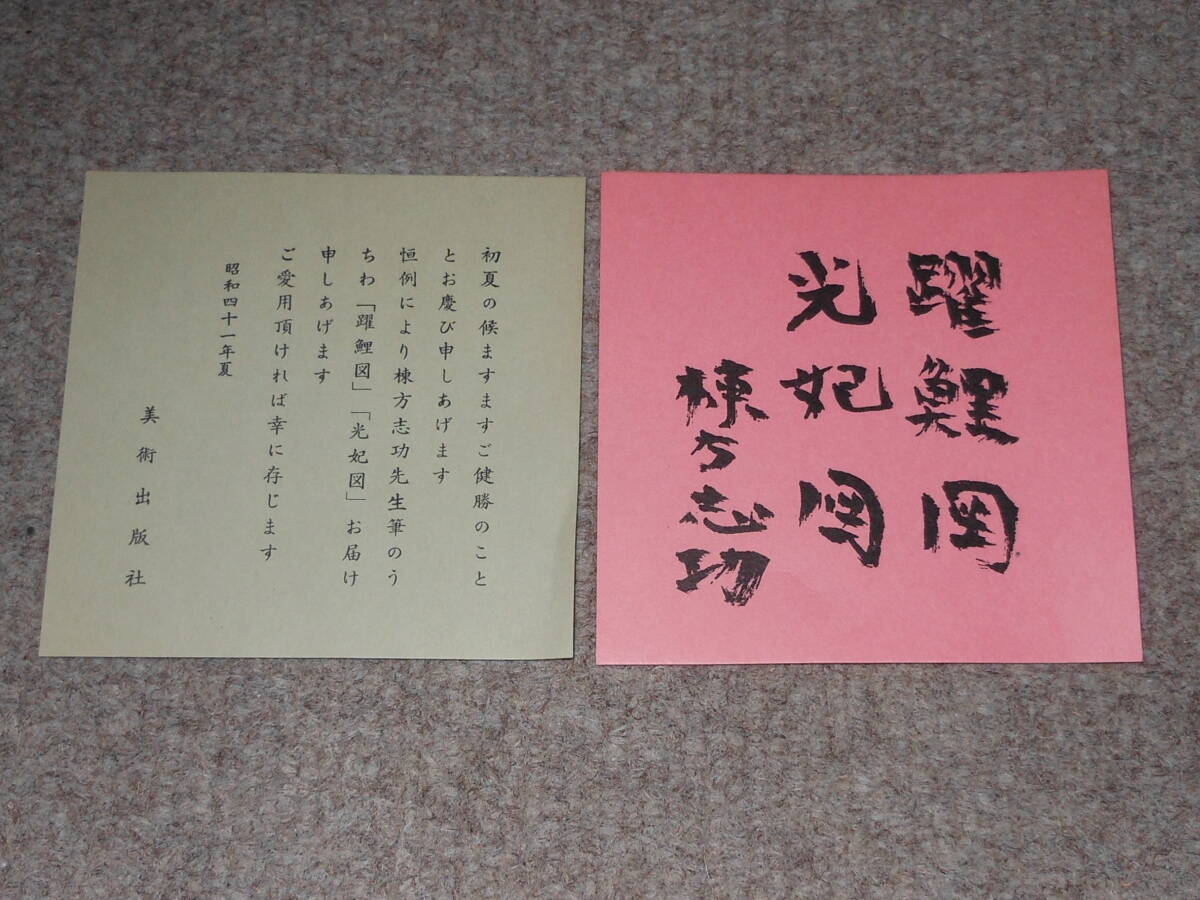 初夏の候ますますご健勝のこと
とお慶び申しあげます
恒例により棟方志功先生筆のう
ちわ「躍鯉図」「光妃図」お届け
申しあげます
ご愛用頂ければ幸に存じます
昭和四十一年夏
美術出版社
躍鯉図
光妃図
棟方志功